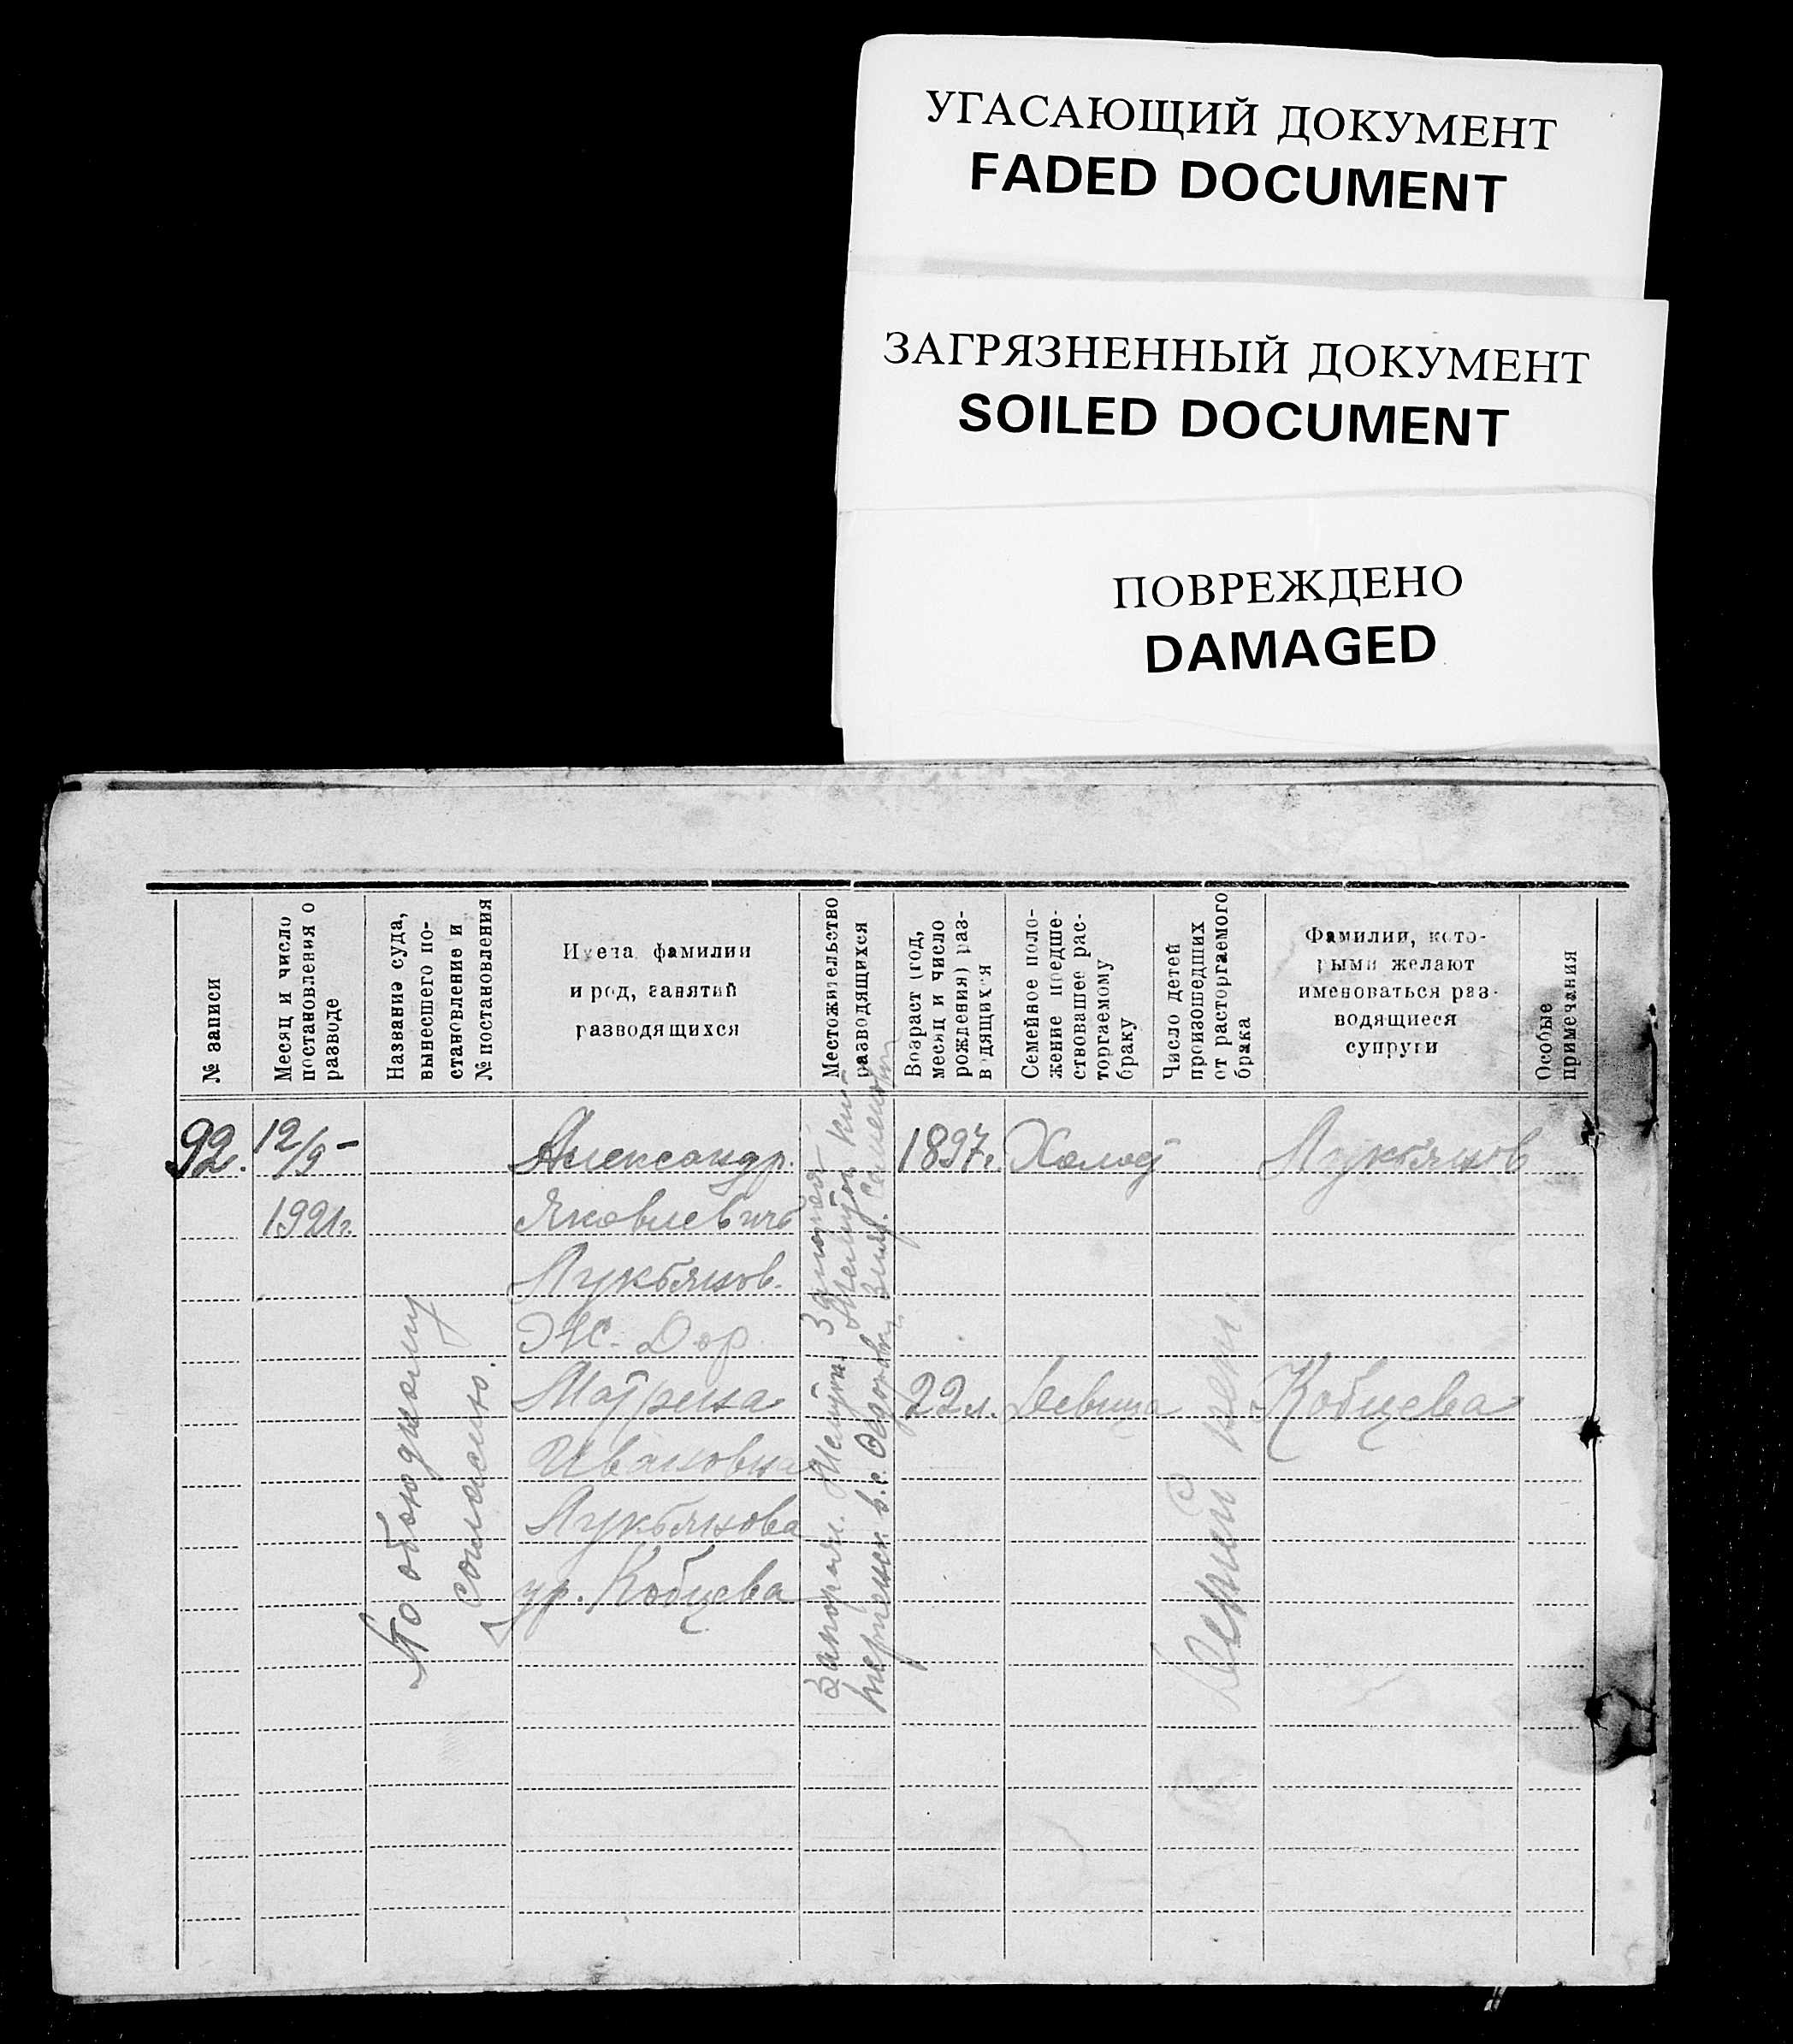 УГАСАЮЩИЙ ДОКУМЕНТ
FADED DOCUMENT
ЗАГРЯЗНЕННЫЙ ДОКУМЕНТ
SOILED DOCUMENT
ПОВРЕЖДЕНО
DAMAGED
№ записи
Месяц и число
постановления о
разводе
Название суда,
вынесшего по-
становление и
№ постановления
Имена фамилии
и род, занятий
разводящихся
Местожительство
разводящихся
Возраст (год,
месяц и число
рождения) раз-
водящихся
Семейное поло-
жение предше-
ствовавшее рас-
торгаемому
браку
Число детей
произошедших
от расторгаемого
брака
Фамилии, кото-
рыми желают
именоваться раз-
водящиеся
супруги
Особые
примечания
92.
12/9 –
1921г.
По обоюдному
согласию.
Александр.
Яковлевичъ
Лукьянов.
Ж. Дор
Матрена
Ивановна
Лукьянова
ур. Кобцева
1897г.
22л.
Холост
Девица
Детей нет.
Лукьянов
Кобцева